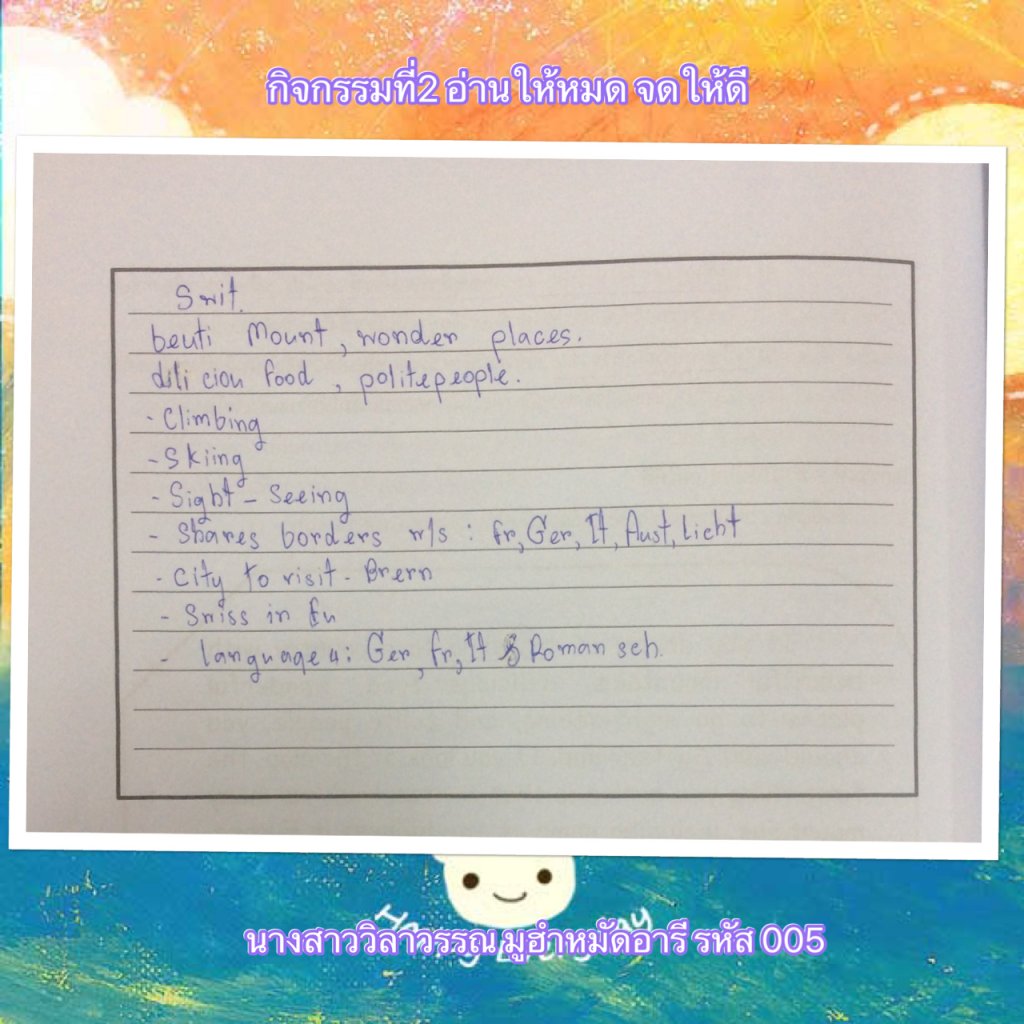 กิจกรรมที่2 อ่านให้หมด จดให้ดี
Swit.
beuti Mount, wonder places.
diliciou food, politepeople.
- Climbing
- Skiing
- Sight - Seeing
- Shares borders w/s : fr, Ger, It, Aust, Licht
- City to visit - Brern
- Swiss in Eu
- language 4: Ger, fr, It & Roman sch.
นางสาววิลาวรรณ มูฮำหมัดอารี รหัส 005